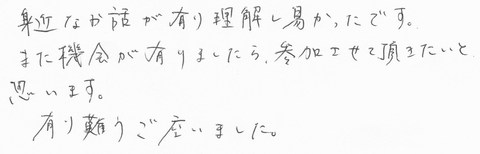 身近なお話が有り理解し易かったです。
また機会が有りましたら、参加させて頂きたいと
思います。
有り難うご座いました。